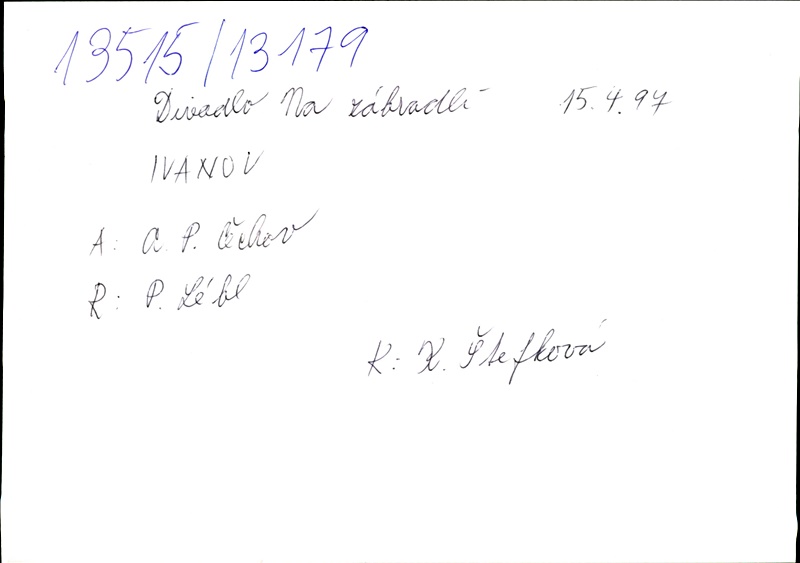 13515/13179
Divadlo Na zábradlí 15.4.97
IVANOV
A: A. P. Čechov
R: P. Lébl
K: K. Štefková